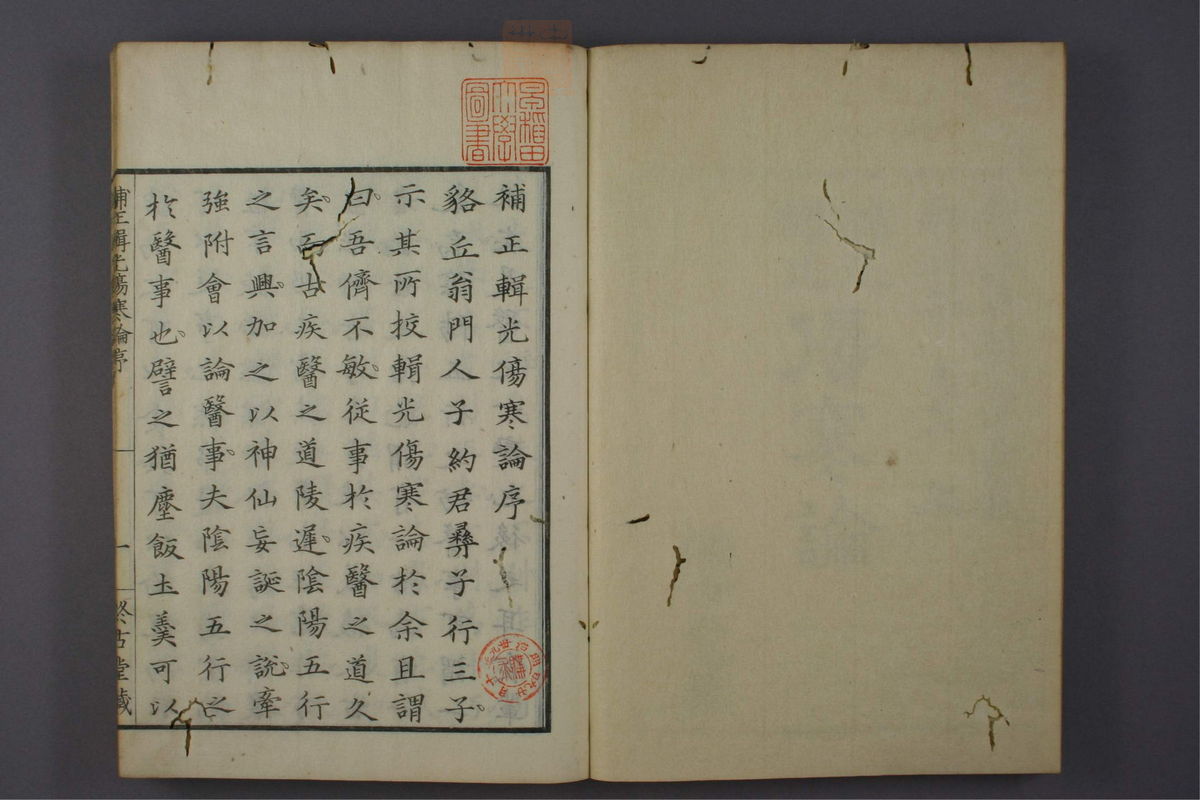 補正輯光傷寒論序
貉丘翁門人子約君彝子行三子
示其所挍輯光傷寒論於余且謂
曰吾儕不敏從事於疾醫之道久
矣而古疾醫之道陵遲陰陽五行
之言興加之以神仙妄誕之說牽
強附會以論醫事夫陰陽五行之
於醫事也譬之猶塵飯圡羹可以
補正輯光傷寒論序
一
終古堂藏
早稲田
大學
圖書